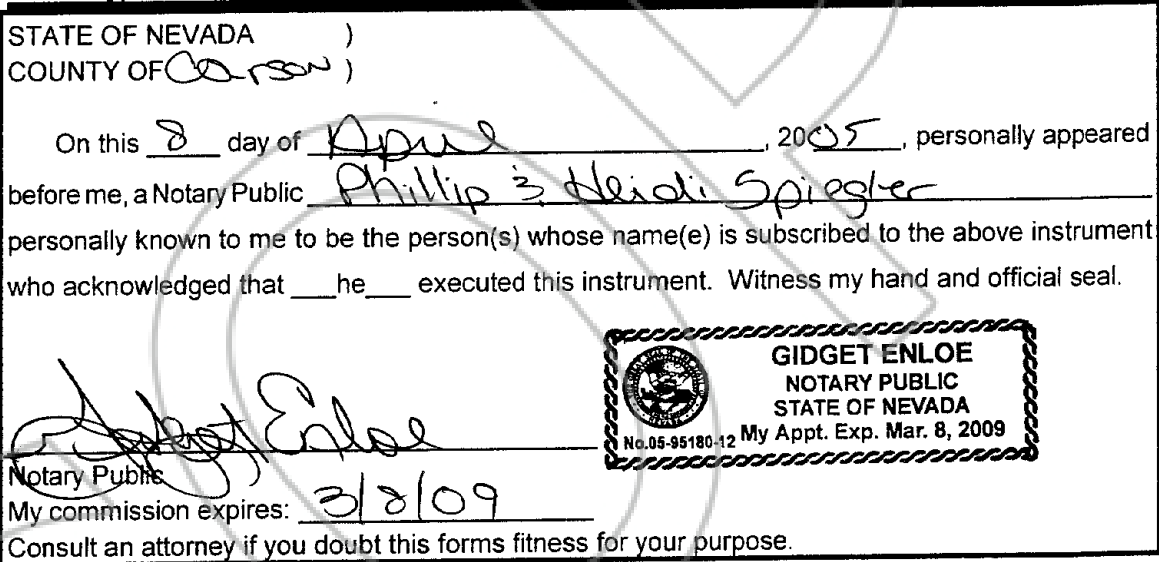 STATE OF NEVADA )
COUNTY OF Carson )
On this 8 day of April, 2005, personally appeared
before me, a Notary Public Phillip & Heidi Spiegler
personally known to me to be the person(s) whose name(e) is subscribed to the above instrument
who acknowledged that ___he___ executed this instrument. Witness my hand and official seal.
GIDGET ENLOE
NOTARY PUBLIC
STATE OF NEVADA
No.05-95180-12 My Appt. Exp. Mar. 8, 2009
Gidget Enloe
Notary Public
My commission expires: 3/8/09
Consult an attorney if you doubt this forms fitness for your purpose.